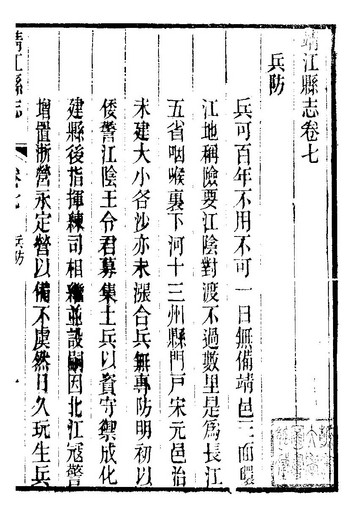 靖江縣志卷七
兵防
兵可百年不用不可一日無備靖邑三面環
江地稱險要江陰對渡不過數里是為長江
五省咽喉裏下河十三州縣門戶宋元邑治
未建大小各沙亦未漲合兵無專防明初以
倭警江陰王令君募集土兵以資守禦成化
建縣後指揮練司相繼並設嗣因北江寇警
增置浙營永定營以備不虞然日久玩生兵
靖江縣志
卷七
兵防
一